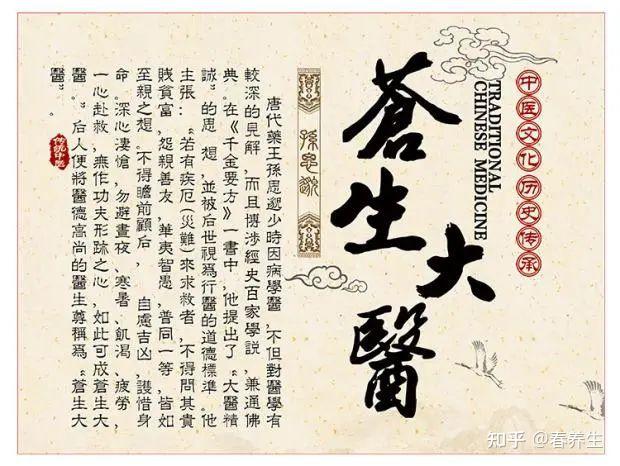 中医文化历史传承
TRADITIONAL
CHINESE MEDICINE
蒼生大醫
孫思邈
唐代藥王孫思邈少時因病學醫，不但對醫學有
較深的見解，而且博涉經史百家學説，兼通佛
典。在《千金要方》一書中，他提出了“大醫精
誠”的思 想，並被后世視爲行醫的道德標準。他
主張：“若有疾厄（災難）來求救者，不得問其貴
賤貧富，怨親善友，華夷智愚，普同一等，皆如
至親之想。不得瞻前顧后， 自慮吉凶，護惜身
命。深心淒愴，勿避晝夜、寒暑、飢渴、疲勞，
一心赴救，無作功夫形跡之心，如此可成蒼生大
醫”。后人便將醫德高尚的醫生尊稱爲“蒼生大
醫”。
传统中医
知乎 @春养生